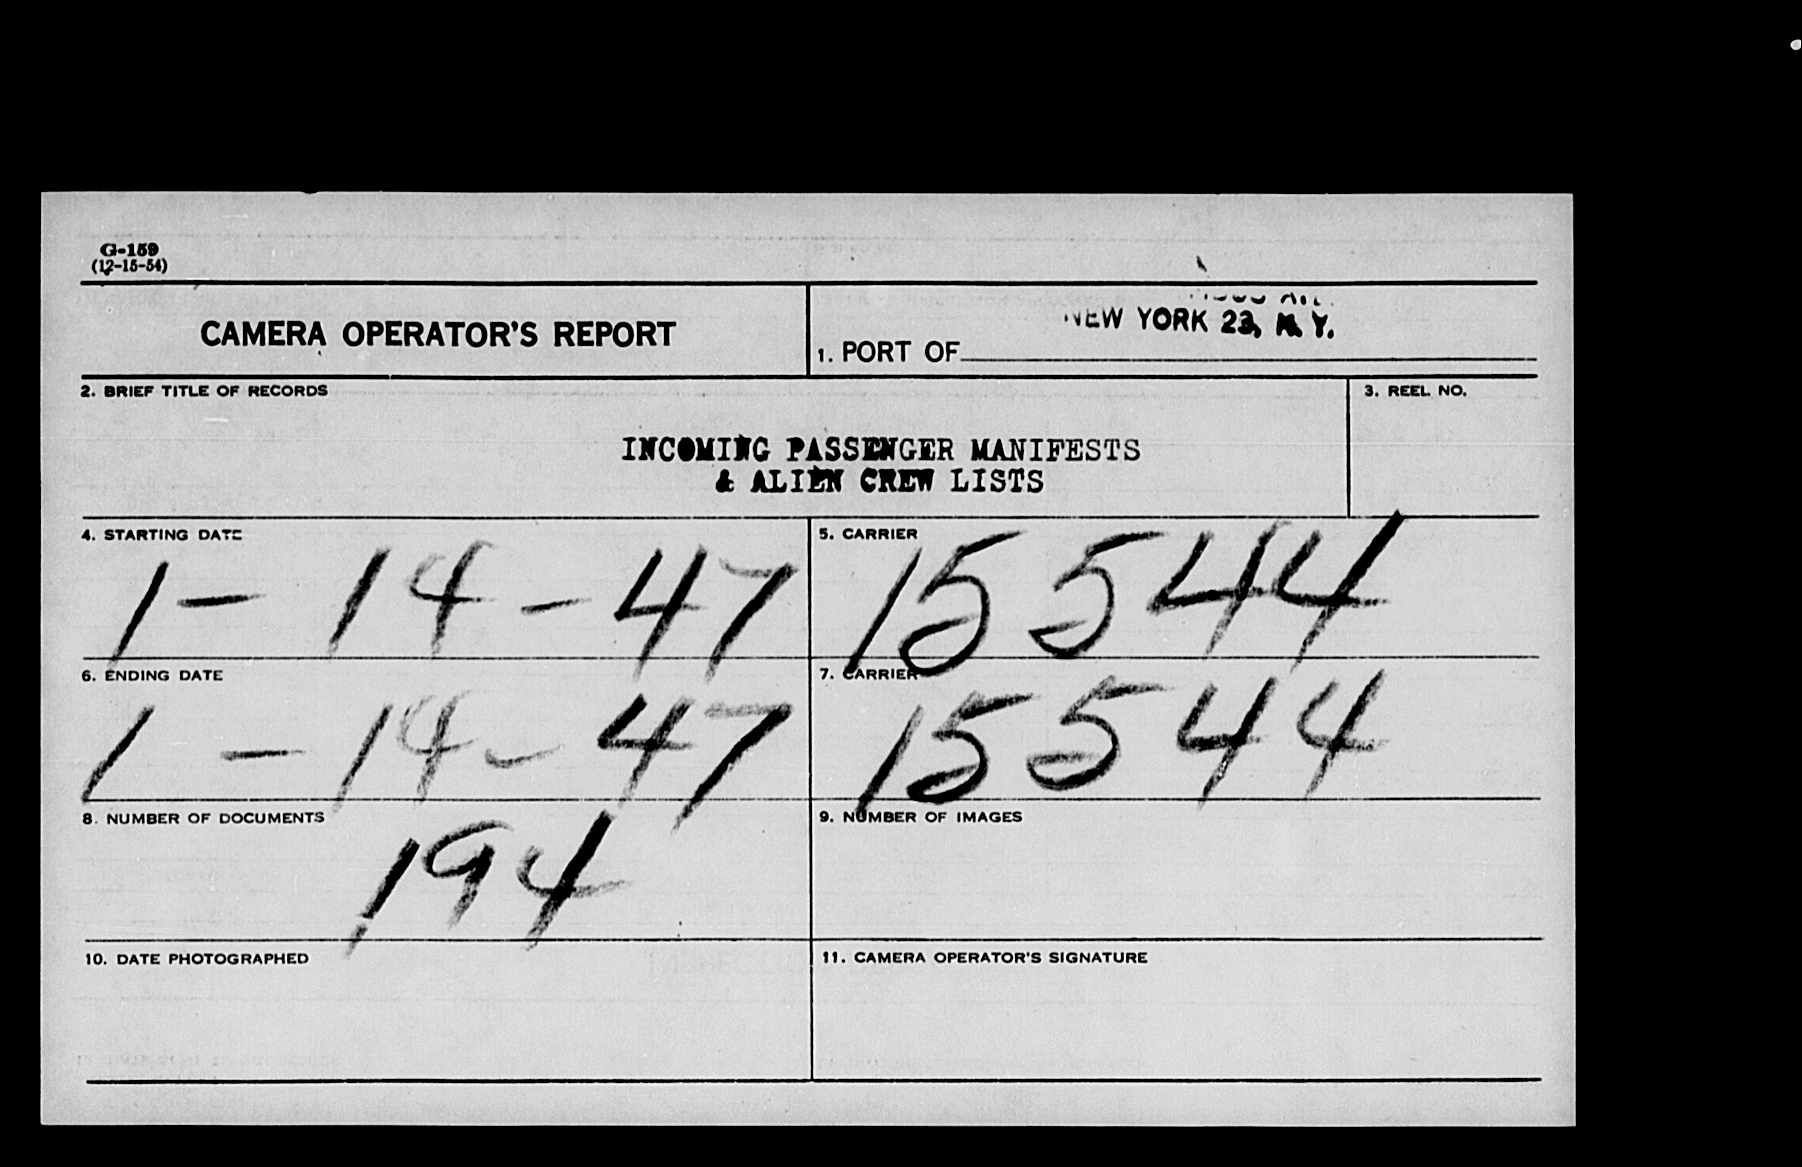 G-159
(12-15-54)
CAMERA OPERATOR'S REPORT
NEW YORK 23, N. Y.
1. PORT OF
2. BRIEF TITLE OF RECORDS
3. REEL NO.
INCOMING PASSENGER MANIFESTS
& ALIEN CREW LISTS
4. STARTING DATE
1-14-47
5. CARRIER
15544
6. ENDING DATE
1-14-47
7. CARRIER
15544
8. NUMBER OF DOCUMENTS
194
9. NUMBER OF IMAGES
10. DATE PHOTOGRAPHED
11. CAMERA OPERATOR'S SIGNATURE